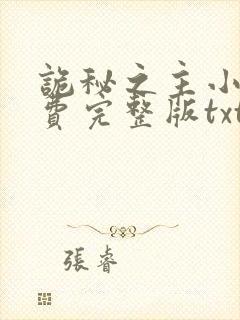 詭秘之主小
費完整版txt
張睿